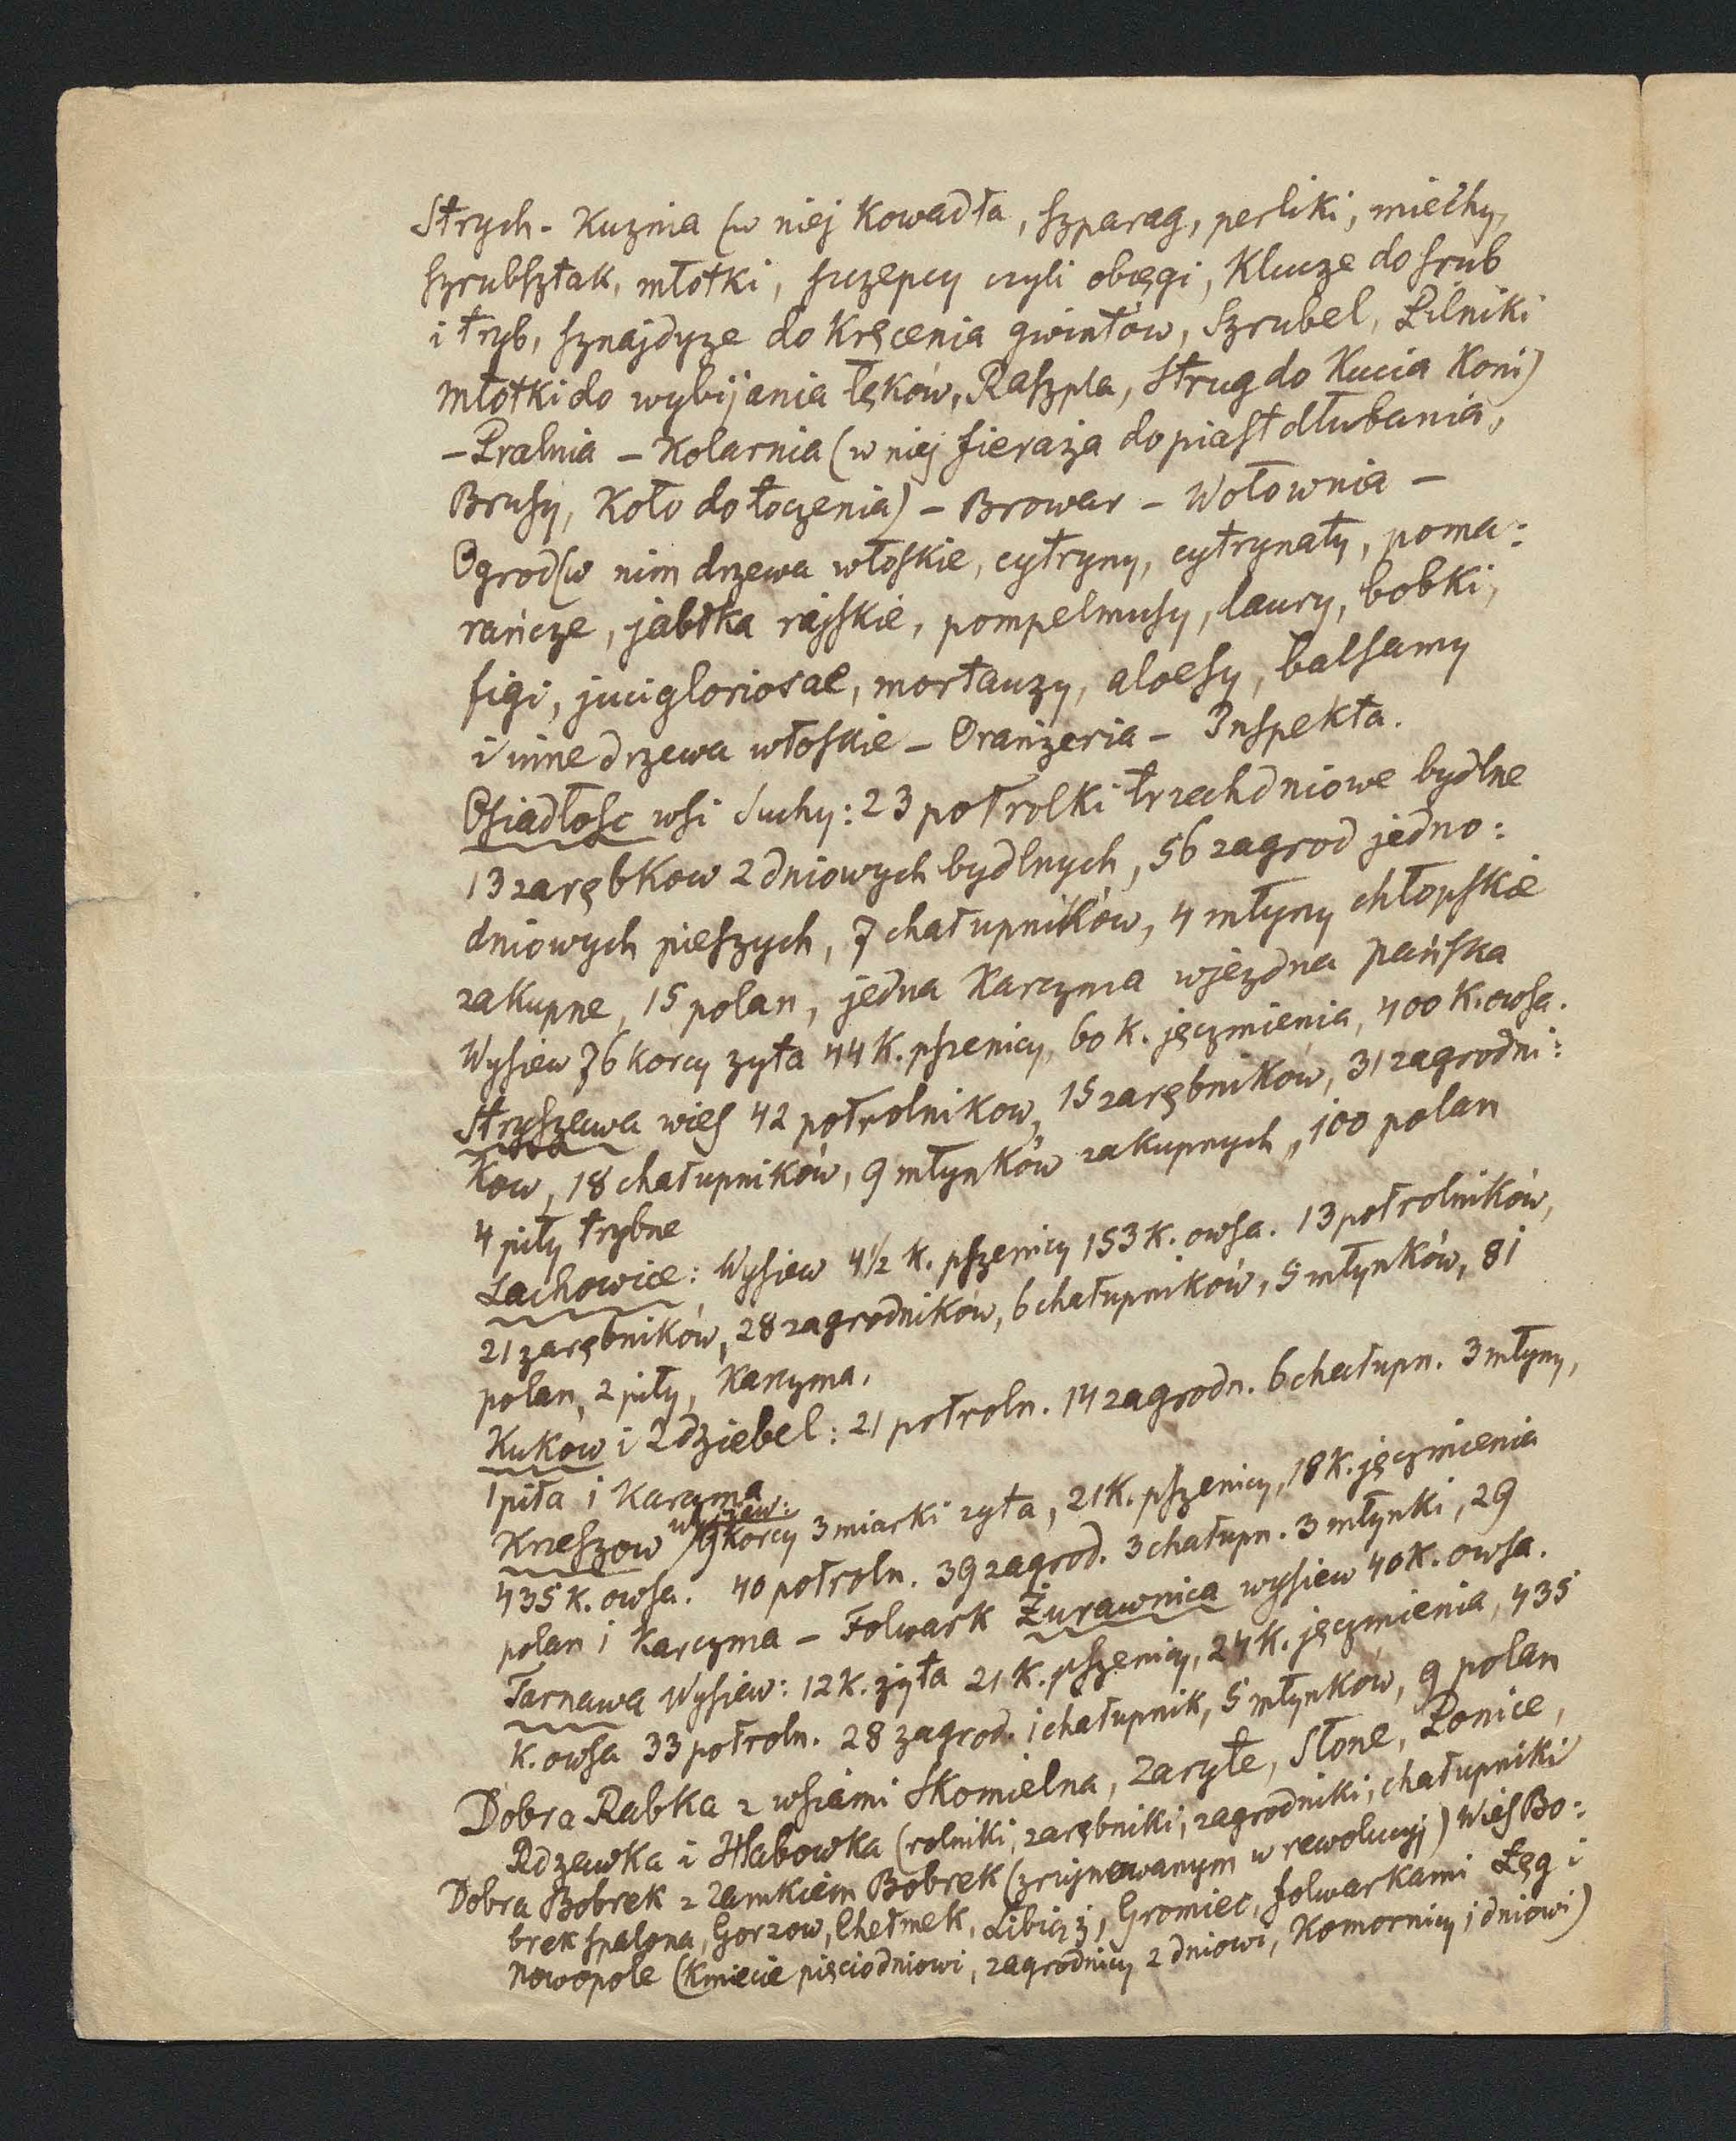 Strych - Kuznia (w niej Kowadła, szparag, perliki, miechy,
szrubsztak, młotki, szczepcy czyli obcęgi, Klucze do srub
i tryb, sznajdyze do Kręcenia gwintów, Szrubel, Pilniki
młotki do wybijania łęków, Raszpla, strug do Kucia Koni)
- Pralnia - Kolarnia (w niej fieraja do piast dłubania,
Brusy, Koło do toczenia) - Browar - Wołownia -
Ogrod (w nim drzewa włoskie, cytryny, cytrynaty, poma:
rańcze, jabłka rajskie, pompelmusy, laury, bobki,
figi, juci gloriosae, mortauzy, aloesy, balsamy
i inne drzewa włoskie - Oranżeria - Inspekta.
Osiadłosc wsi Suchy: 23 połrolki trzechdniowe bydlne
13 zarębkow 2 dniowych bydlnych, 56 zagrod jedno:
dniowych pieszych, 7 chałupników, 4 młyny chłopskie
zakupne, 15 polan, jedna Karczma wjezdna pańska
Wysiew 76 korcy zyta 44 K. pszenicy, 60 K. jęczmienia, 400 K. owsa.
Stryszawa wies 42 połrolnikow, 15 zarębników, 31 zagrodni:
kow, 18 chałupników, 9 młynków zakupnych, 100 polan
4 piły trybne
Lachowice: Wysiew 4½ K. pszenicy 153 K. owsa. 13 połrolników,
21 zarębników, 28 zagrodników, 6 chałupników, 5 młynków, 81
polan, 2 piły, Karczma.
Kukow i Zdziebel: 21 połroln. 14 zagrodn. 6 chałupn. 3 młyny,
1 piła i Karczma
Krzeszow wysiew: 19 korcy 3 miarki zyta, 21 K. pszenicy, 18 K. jęczmienia
435 K. owsa. 40 połroln. 39 zagrod. 3 chałupn. 3 młynki, 29
polan i Karczma - Folwark Żurawnica wysiew 40 K. owsa.
Tarnawa Wysiew: 12 K. żyta 21 K. pszenicy, 24 K. jęczmienia, 435
K. owsa 33 połroln. 28 zagrod. 1 chałupnik, 5 młynków, 9 polan
Dobra Rabka z wsiami Skomielna, Zaryte, Słone, Ponice,
Rdzawka i Habowka (rolniki, zarębniki, zagrodniki, chałupniki
Dobra Bobrek z Zamkiem Bobrek (zrujnowanym w rewolucyj) Wieś Bo:
brek spalona, Gorzow, Chełmek, Libiąż, Gromiec, folwarkami Łęg i
Nowopole (Kmiecie pięciodniowi, zagrodnicy 2 dniowi, Komornicy 1 dniowi)